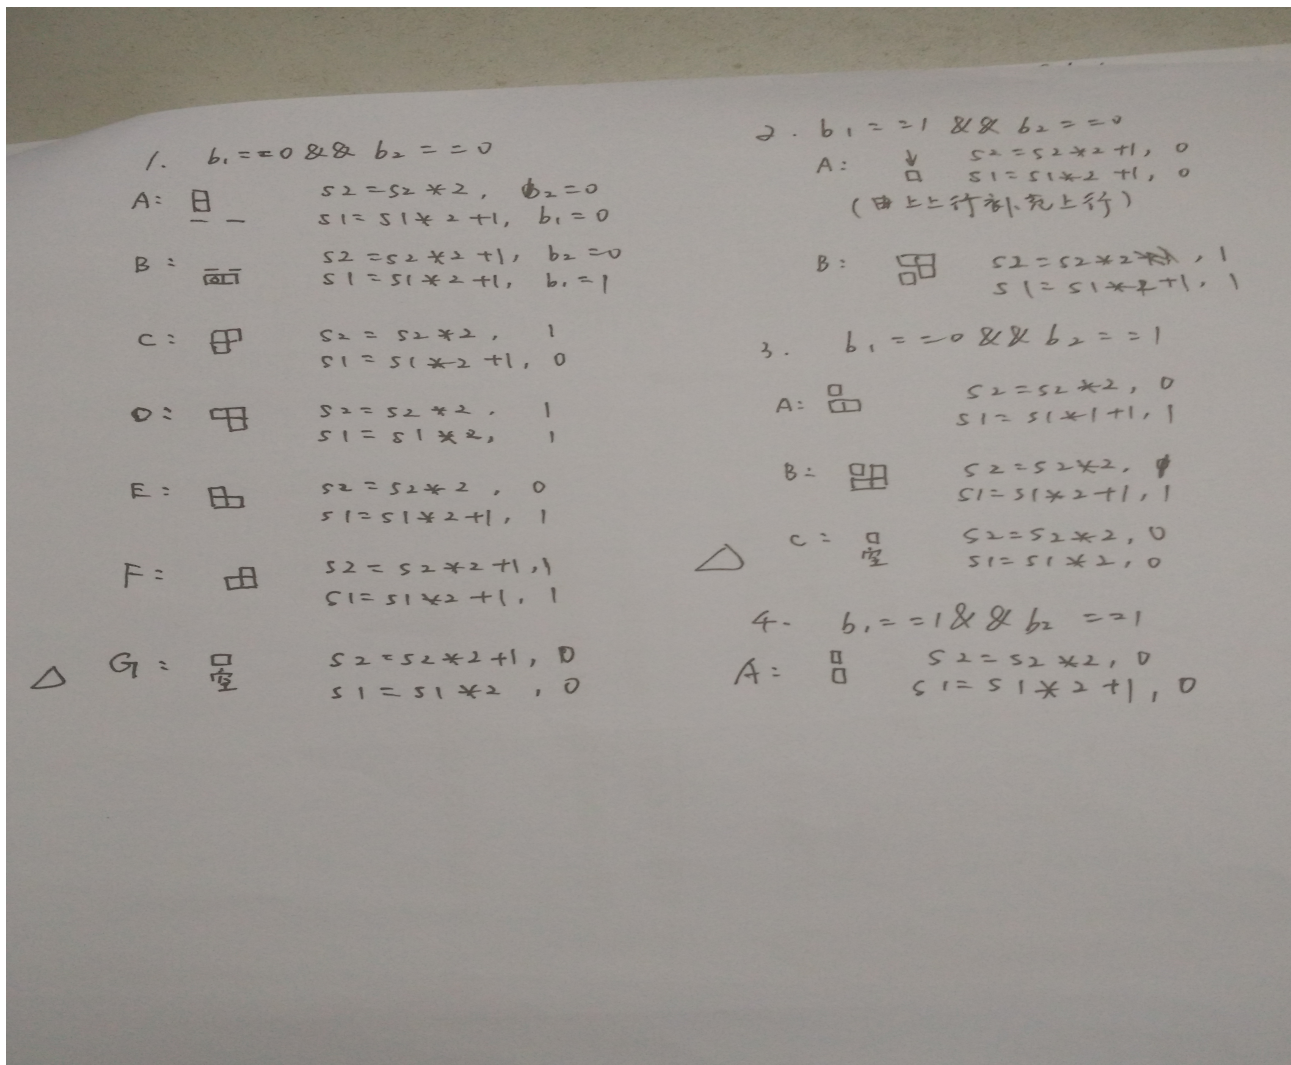 1. b1==0 && b2==0
A: s2=s2*2, b2=0
s1=s1*2+1, b1=0
B: s2=s2*2+1, b2=0
s1=s1*2+1, b1=1
C: s2=s2*2, 1
s1=s1*2+1, 0
D: s2=s2*2, 1
s1=s1*2, 1
E: s2=s2*2, 0
s1=s1*2+1, 1
F: s2=s2*2+1, 1
s1=s1*2+1, 1
△ G: 空 s2=s2*2+1, 0
s1=s1*2, 0
2. b1==1 && b2==0
A: s2=s2*2+1, 0
s1=s1*2+1, 0
(由上上行补充上行)
B: s2=s2*2, 1
s1=s1*2+1, 1
3. b1==0 && b2==1
A: s2=s2*2, 0
s1=s1*1+1, 1
B: s2=s2*2,
s1=s1*2+1, 1
△ C: 空 s2=s2*2, 0
s1=s1*2, 0
4. b1==1 && b2==1
A: s2=s2*2, 0
s1=s1*2+1, 0